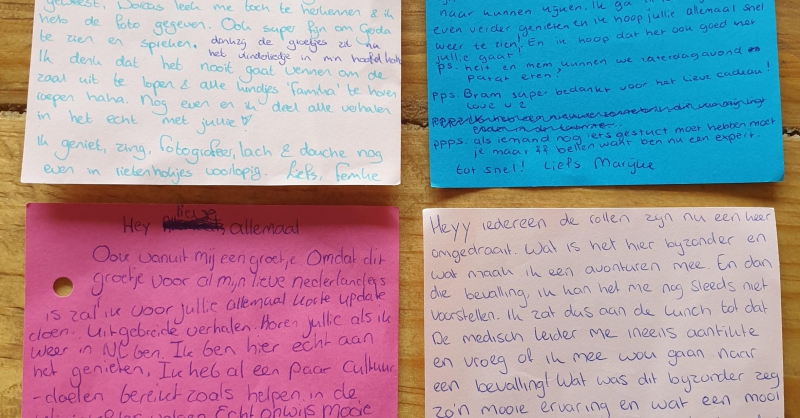 geweest. Dorcas leek me toch te herkennen & ik
heb de foto gegeven. Ook super fijn om Gerda
te zien en spreken. dankzij de groetjes zit nu
het kinderliedje in mn hoofd haha
Ik denk dat het nooit gaat wennen om de
zaal uit te lopen & alle kindjes 'familia' te horen
roepen haha. Nog even en ik deel alle verhalen
in het echt met jullie
Ik geniet, zing, fotografeer, lach & douche nog
even in liefenhokjes voorlopig. Liefs, Femke
naar kunnen kijken. Ik ga
even verder genieten en ik hoop jullie allemaal snel
weer te zien! En ik hoop dat het ook goed met
jullie gaat!
ps. heit en mem kunnen we zaterdagavond
patat eten?
pps. Bram super bedankt voor het lieve cadeau!
love u 2
pppps. als iemand nog iets gestuct moet hebben moet
je maar ff bellen want ben nu een expert.
tot snel! Liefs Marijke
Hey lieve allemaal
Ook vanuit mij een groetje. Omdat dit
groetje voor al mijn lieve nederlanders
is zal ik voor jullie allemaal korte update
doen. Uitgebreide verhalen. Horen jullie als ik
weer in NL ben. Ik ben hier echt aan
het genieten. Ik heb al een paar cultuur
-doelen bereikt zoals helpen in de
Echt onwijs mooie
Heyy iedereen de rollen zijn nu een keer
omgedraait. Wat is het hier byzonder en
wat maak ik een avonturen mee. En dan
die bevalling, ik kan het me nog steeds niet
voorstellen. Ik zat dus aan de lunch tot dat
De medisch leider me ineens aantikte
en vroeg of ik mee wou gaan naar
een bevalling! Wat was dit byzonder zeg
zo'n mooie ervaring en wat een mooi